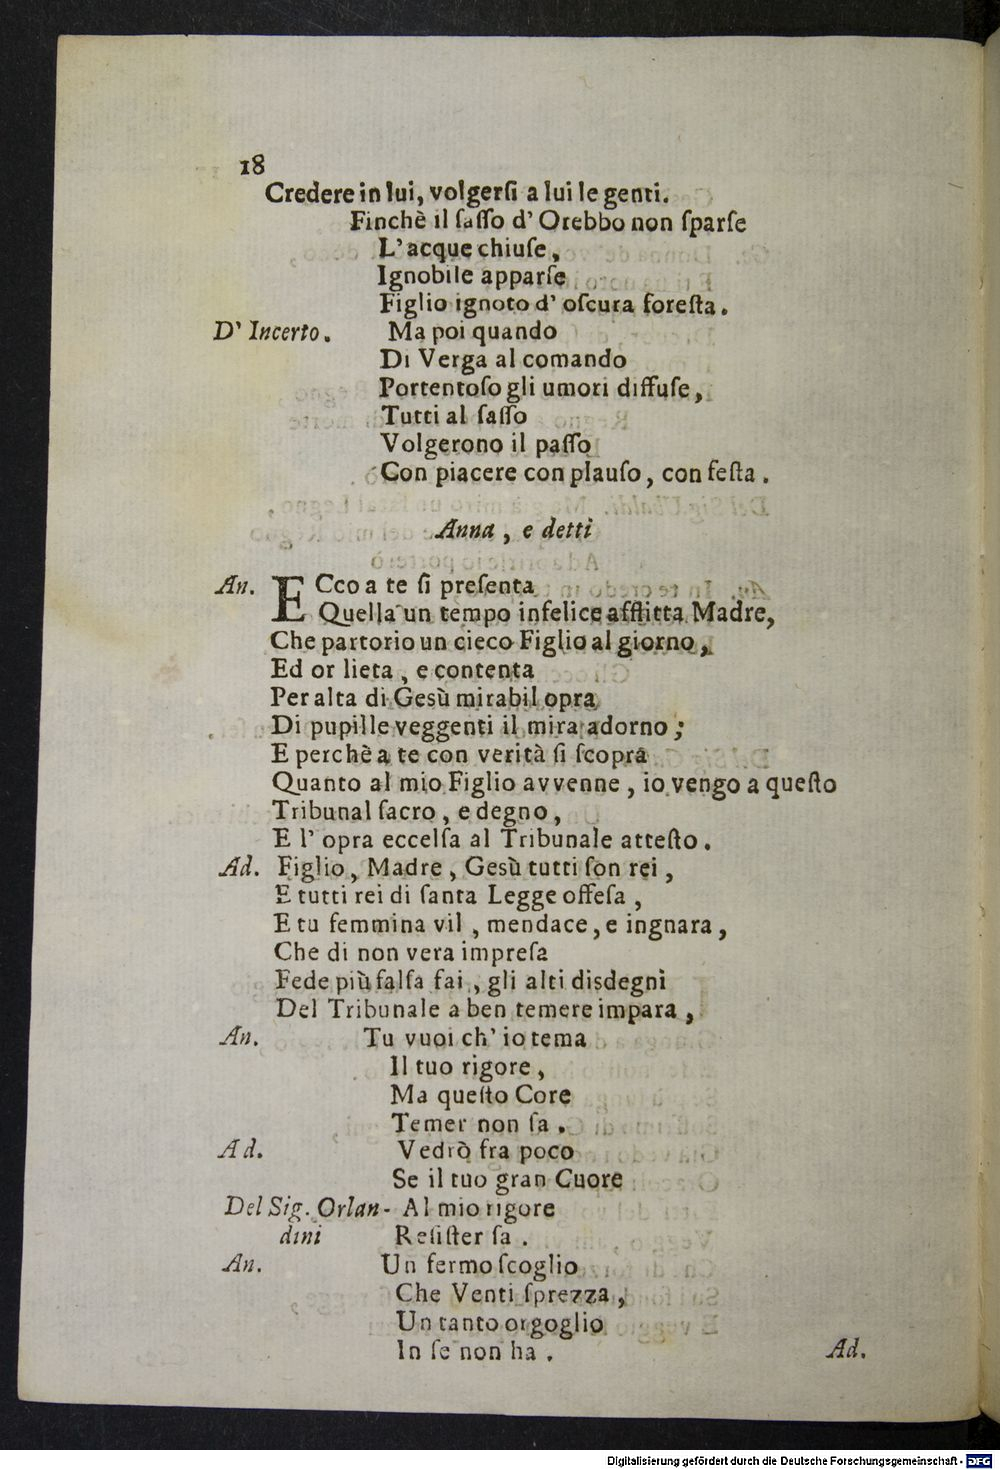 18
Credere in lui, volgerſi a lui le genti.
Finchè il ſaſſo d' Orebbo non ſparſe
L' acque chiuſe,
Ignobile apparſe
Figlio ignoto d' oſcura foreſta.
D' Incerto. Ma poi quando
Di Verga al comando
Portentoſo gli umori diffuſe,
Tutti al ſaſſo
Volgerono il paſſo
Con piacere con plauſo, con feſta.
Anna, e detti
An. ECco a te ſi preſenta
Quella un tempo infelice afflitta Madre,
Che partorio un cieco Figlio al giorno,
Ed or lieta, e contenta
Per alta di Gesù mirabil opra
Di pupille veggenti il mira adorno;
E perchè a te con verità ſi ſcopra
Quanto al mio Figlio avvenne, io vengo a queſto
Tribunal ſacro, e degno,
E l' opra eccelſa al Tribunale atteſto.
Ad. Figlio, Madre, Gesù tutti ſon rei,
E tutti rei di ſanta Legge offeſa,
E tu femmina vil, mendace, e ingnara,
Che di non vera impreſa
Fede più falſa fai, gli alti disdegni
Del Tribunale a ben temere impara,
An. Tu vuoi ch' io tema
Il tuo rigore,
Ma queſto Core
Temer non ſa.
Ad. Vedrò fra poco
Se il tuo gran Cuore
Del Sig. Orlan- Al mio rigore
dini Reſiſter ſa.
An. Un fermo ſcoglio
Che Venti ſprezza,
Un tanto orgoglio
In ſe non ha.
Ad.
Digitalisierung gefördert durch die Deutsche Forschungsgemeinschaft - DFG